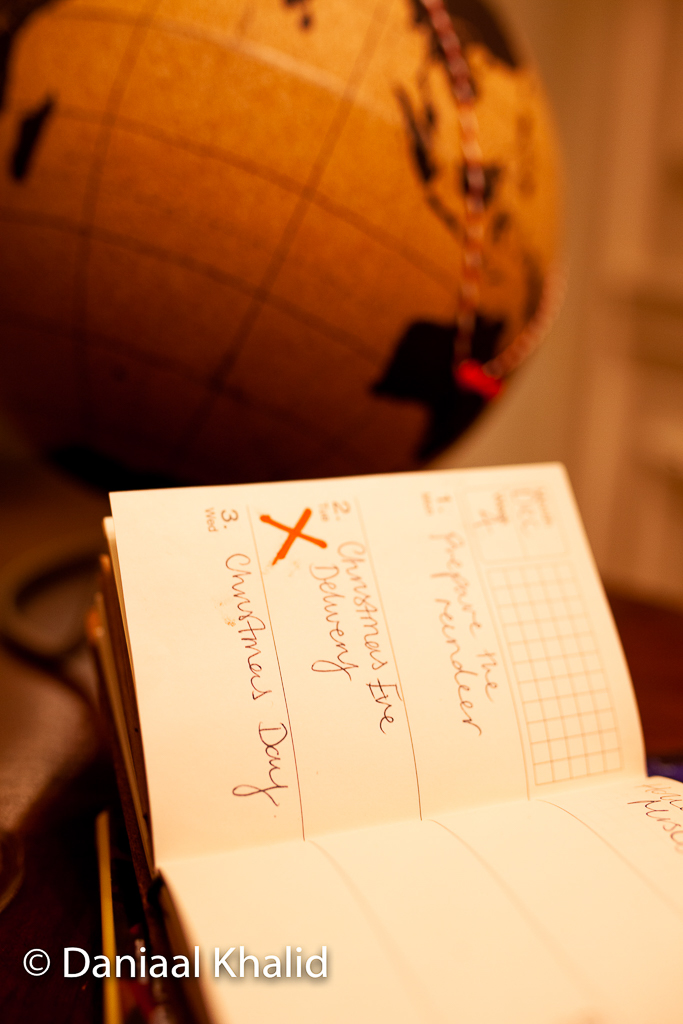 Dec
1.
Prepare the
reindeer
2.
Tue
Christmas Eve
Delivery
3.
Wed
Christmas Day
© Daniaal Khalid